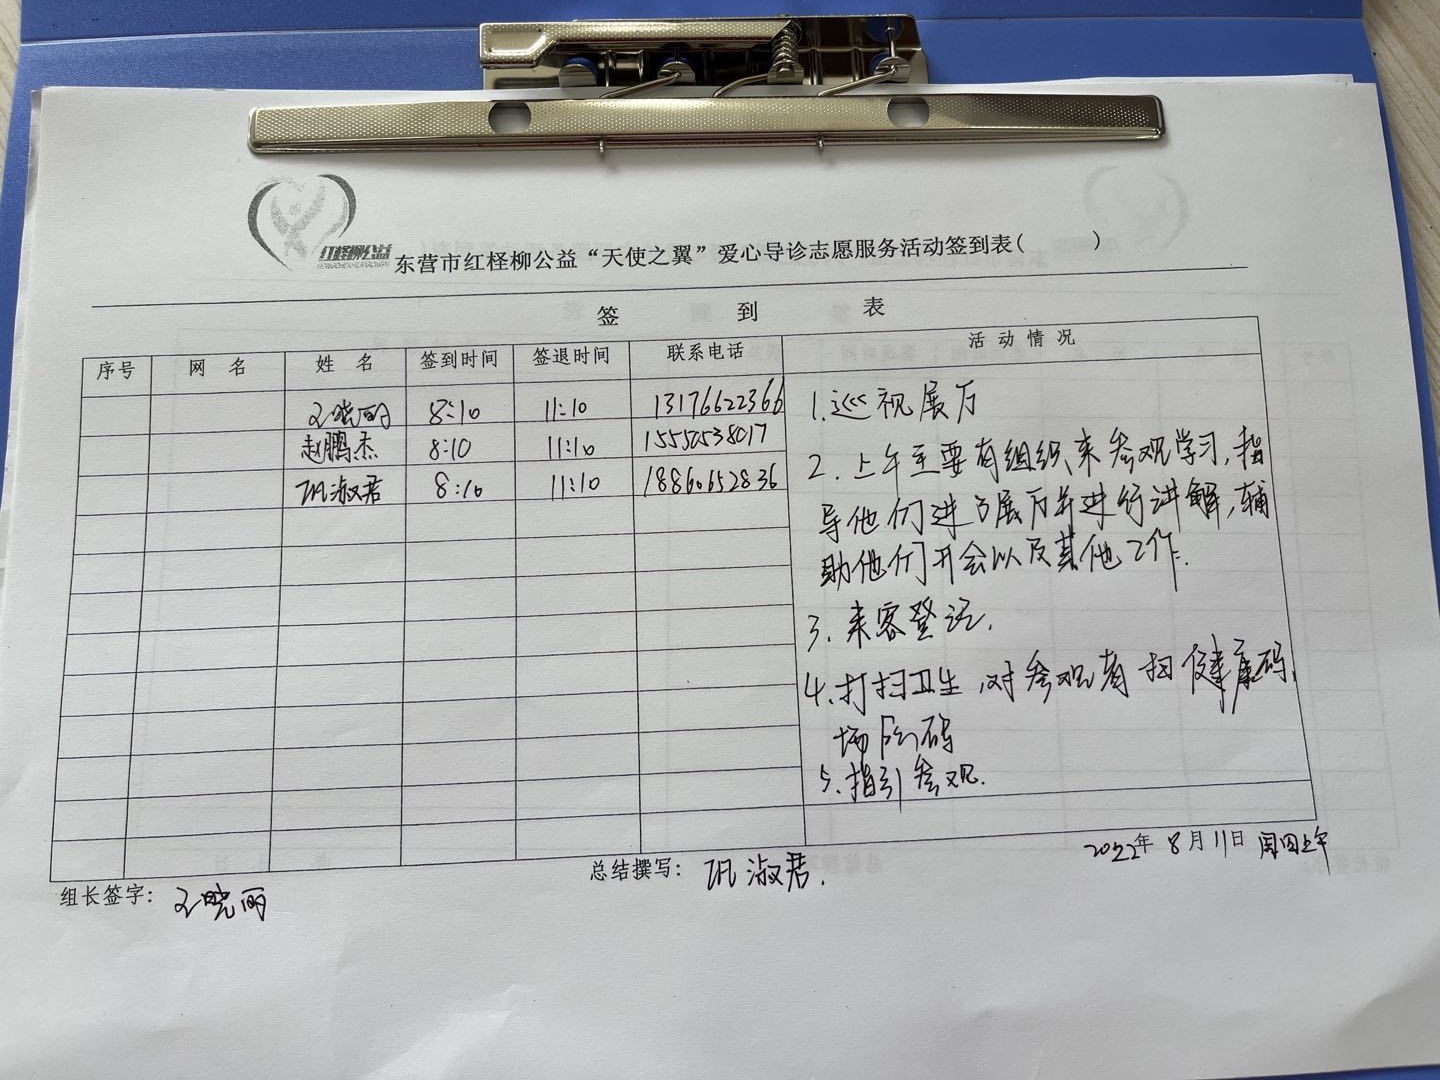 红柽柳公益
东营市红柽柳公益“天使之翼”爱心导诊志愿服务活动签到表( )
签 到 表
序号 网 名 姓 名 签到时间 签退时间 联系电话 活 动 情 况
王晓丽 8:10 11:10 13176622366
赵鹏杰 8:10 11:10 15550538017
巩淑君 8:10 11:10 18860652836
1.巡视展厅
2.上午主要有组织来参观学习,指
导他们进了展厅并进行讲解,辅
助他们开会以及其他工作.
3.来客登记.
4.打扫卫生,对参观者扫健康码,
场所码
5.指引参观.
2022年 8月11日 周四上午
总结撰写: 巩淑君.
组长签字: 王晓丽